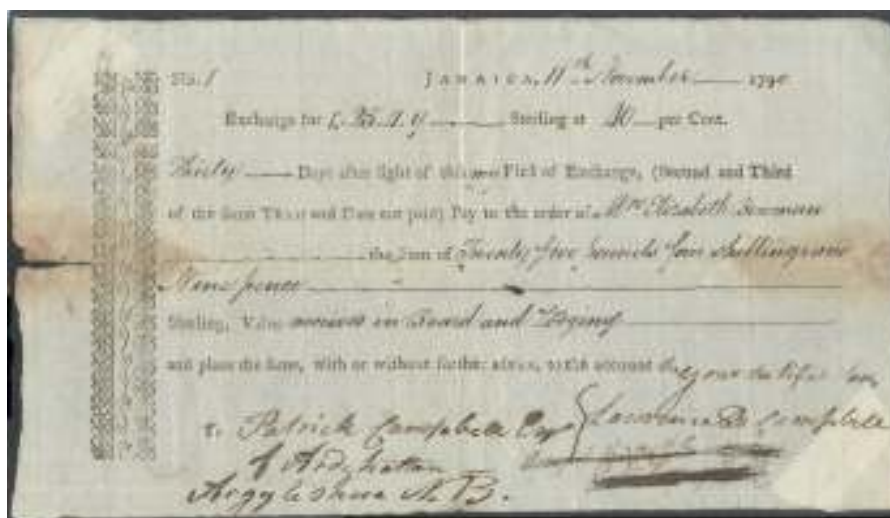 No. 1 JAMAICA, 11th November 1790
Exchange for £ 25. 4. 9 Sterling at 40 per Cent.
Thirty Days after sight of this my First of Exchange, (Second and Third
of the same Tenor and Date not paid) Pay to the order of Mrs Elizabeth Bowman
the Sum of Twenty five pounds four Shillings and
Nine pence
Sterling, Value received in Board and Lodging
and place the same, with or without further advice, to the account
To Patrick Campbell Esqr Lawrence D. Campbell
of Ardchattan
Argyleshire N.B.